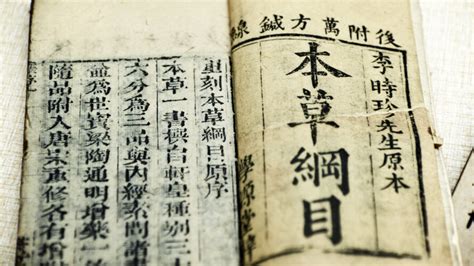 後附萬方鍼線
李時珍先生原本
本草綱目
學源堂
重刻本草綱目原序
本草一書撰自軒皇種別三
六分為三品與內經素問諸
為世寶梁陶通明增藥一
隨品附入唐宋重修各有增